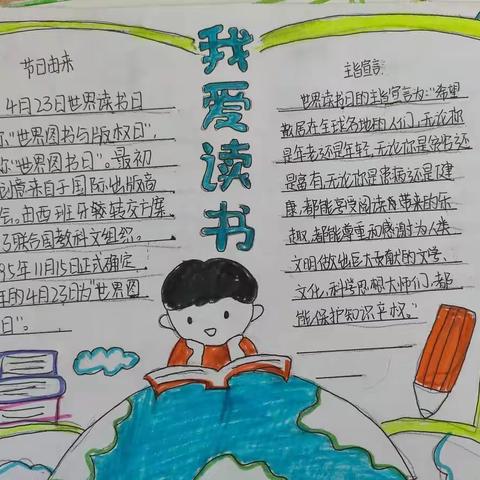 我爱读书
节日由来
4月23日世界读书日
称"世界图书与版权日",
称"世界图书日"。最初
创意来自于国际出版商
会。由西班牙转交方案
了联合国教科文组织。
95年11月15日正式确定
年的4月23日为"世界图
日"。
主旨宣言:
世界读书日的主旨宣言为:"希望
散居在全球各地的人们,无论你
是年老还是年轻,无论你是贫穷还
是富有,无论你是患病还是健
康,都能享受阅读所带来的乐
趣,都能尊重和感谢为人类
文明做出巨大贡献的文学、
文化、科学思想大师们,都
能保护知识产权。"